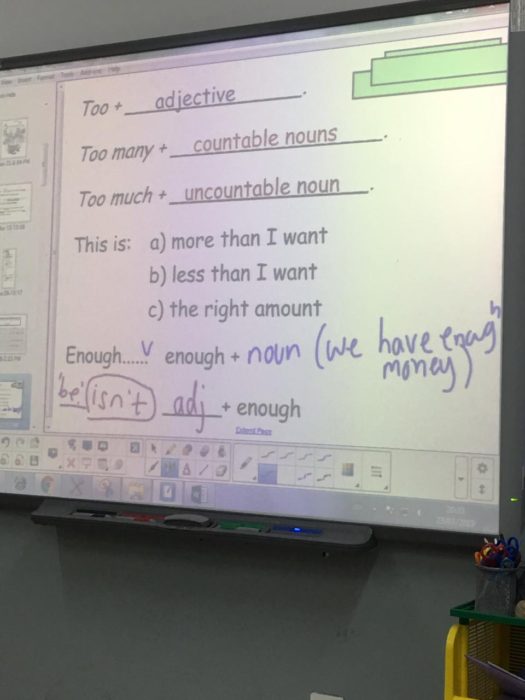 Too + adjective.
Too many + countable nouns.
Too much + uncountable noun.
This is: a) more than I want
b) less than I want
c) the right amount
Enough...... V enough + noun (we have enough money)
'be' (isn't) adj + enough
Extend Page